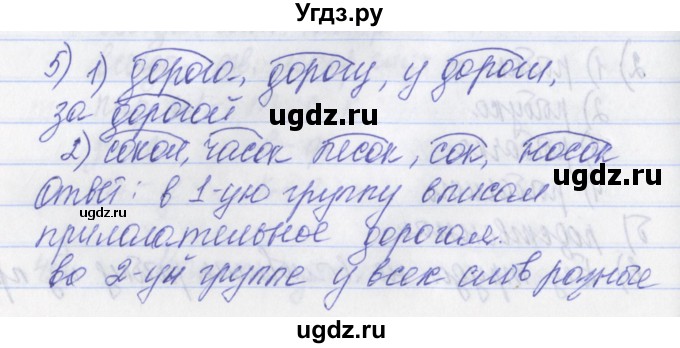 Угдз.ру
5) 1) дорога, дорогу, у дороги,
за дорогой
ugdz.ru ugdz.ru
2) сокол, часок песок, сок, носок
ugdz.ru
Ответ: в 1-ую группу вписали
ugdz.ru
прилагательное дорогая.
во 2-уй группе у всех слов разные
ugdz.ru